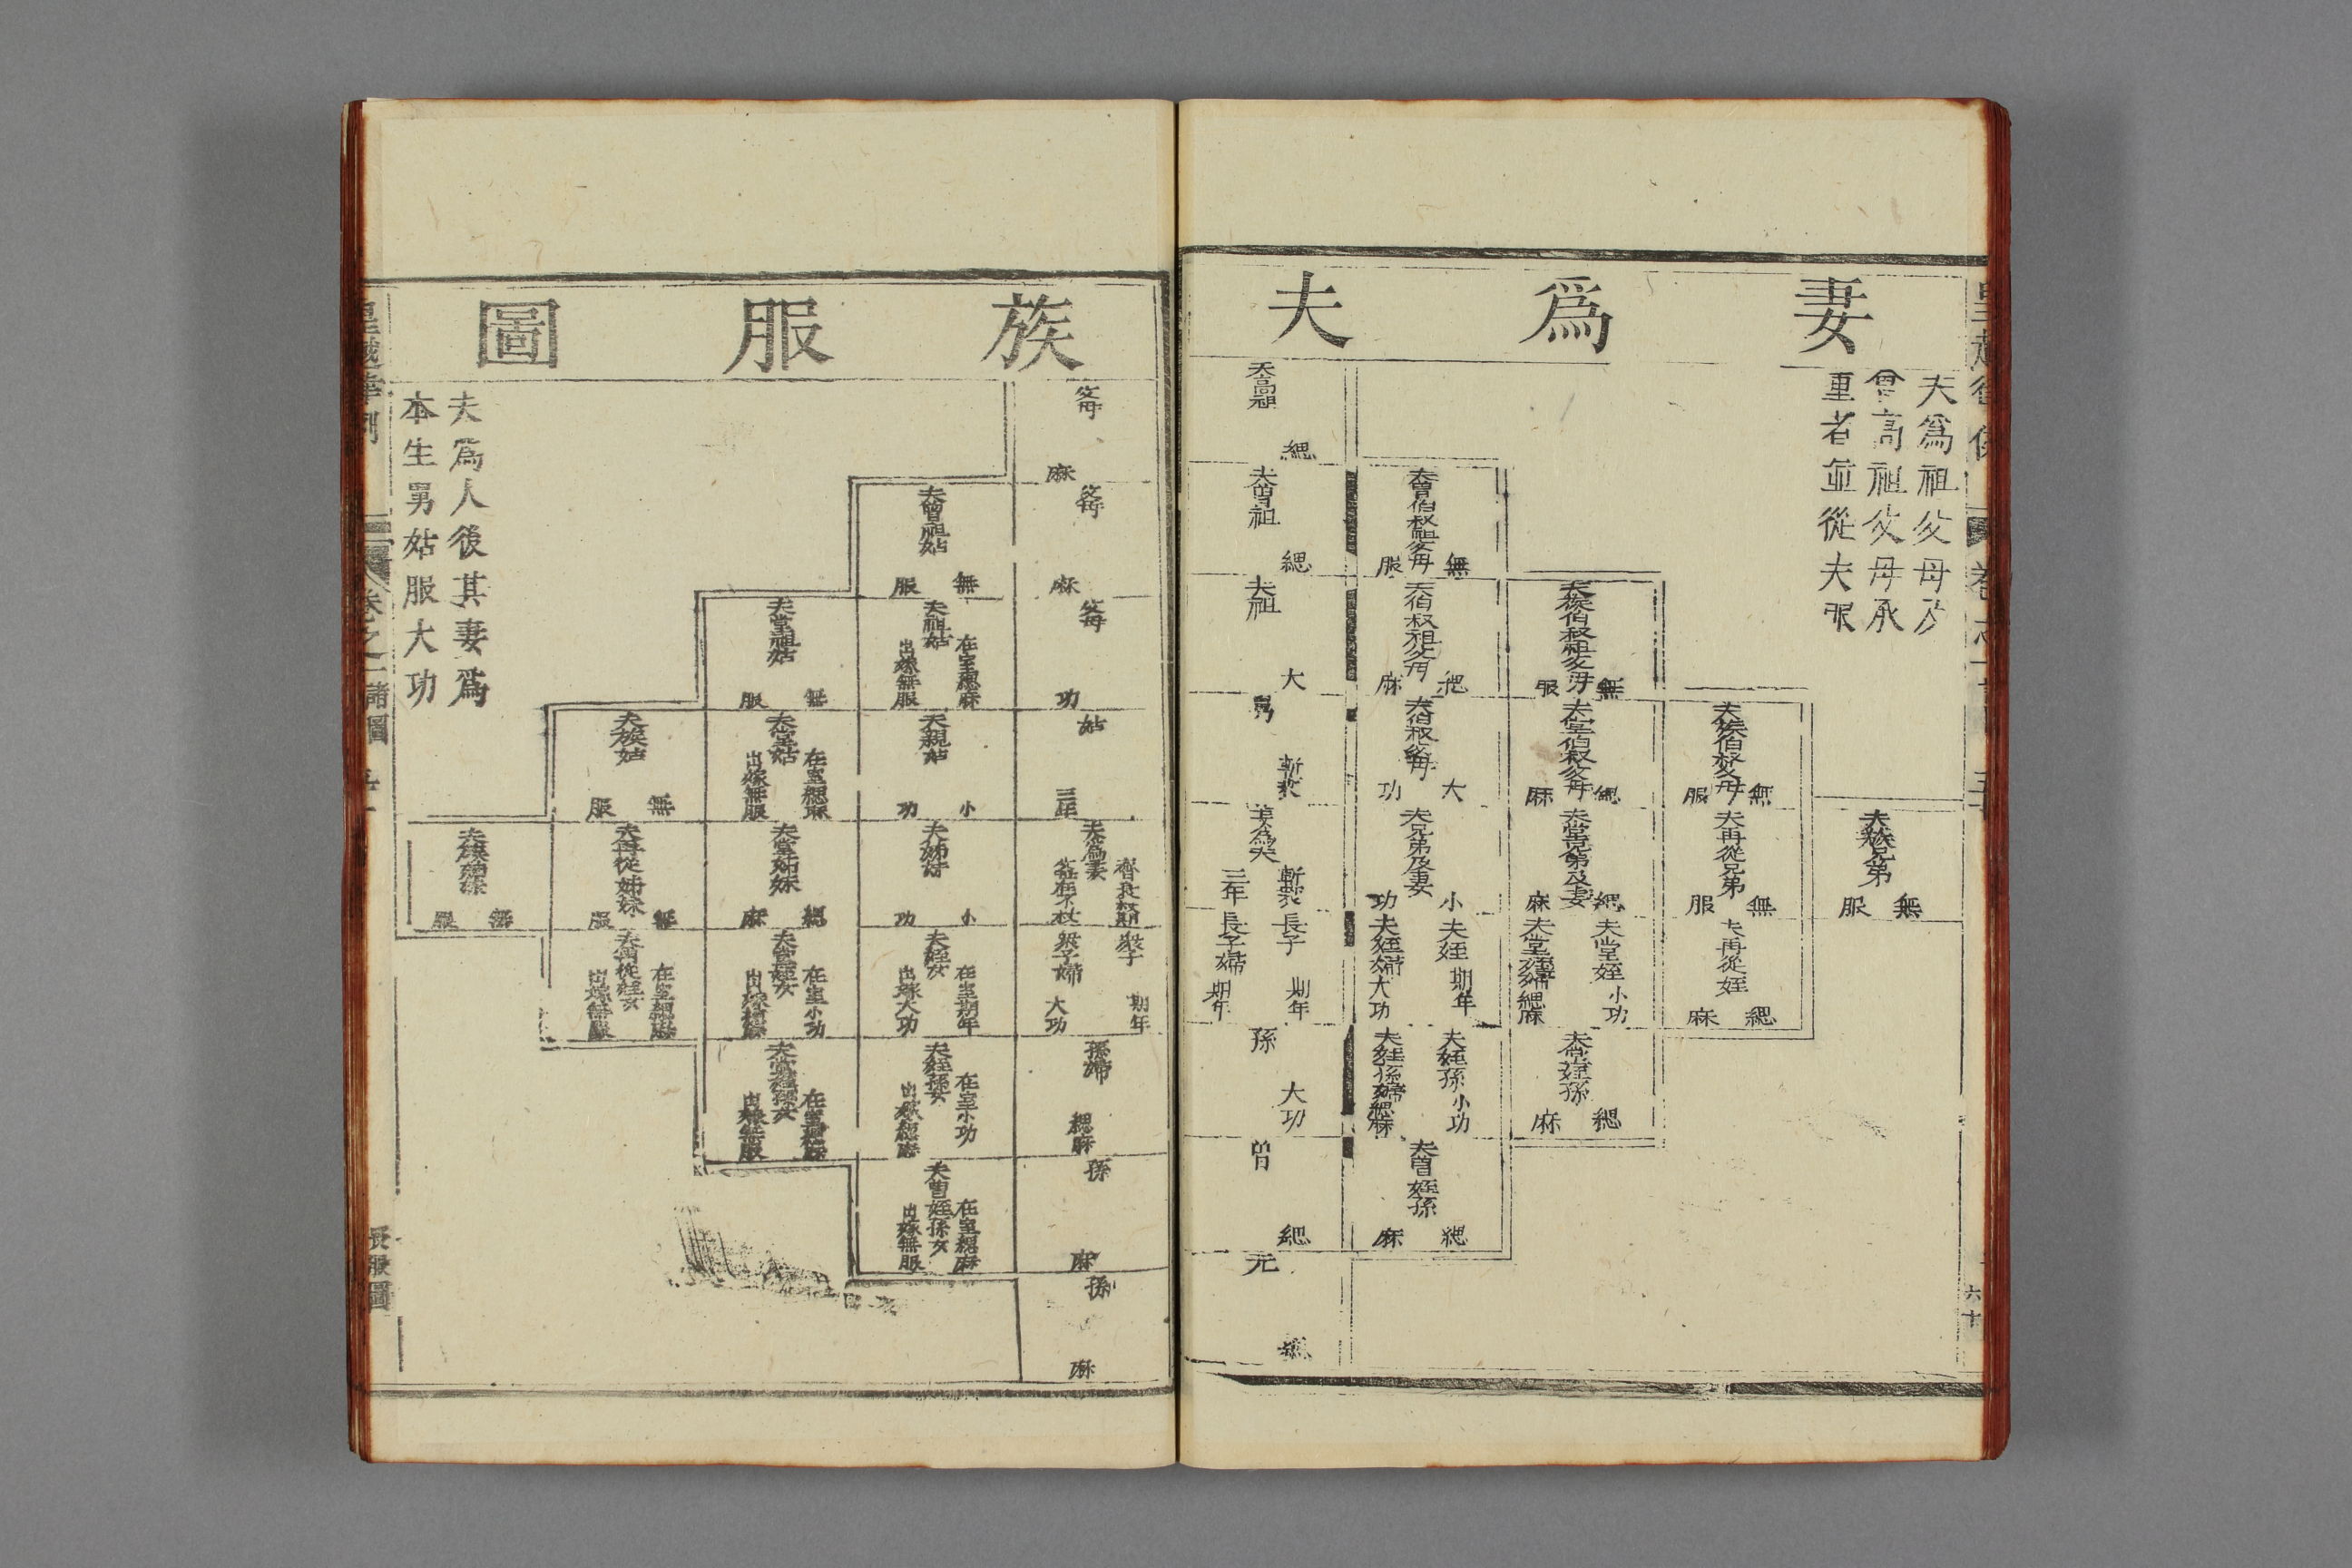 妻爲夫
夫爲祖父母及
曾高祖父母承
重者並從夫服
夫族兄弟
無服
夫族伯叔父母
無服
夫再從兄弟
無服
夫再從姪
緦麻
夫族伯叔祖父母
無服
夫堂伯叔父母
緦麻
夫堂兄弟及妻
緦麻
夫堂姪
小功
夫堂姪婦
緦麻
夫堂姪孫
緦麻
夫曾伯叔祖父母
無服
夫伯叔祖父母
緦麻
夫伯叔父母
大功
夫兄弟及妻
小功
夫姪
期年
夫姪婦
大功
夫姪孫
小功
夫姪孫婦
緦麻
夫曾姪孫
緦麻
夫高祖
緦
夫曾祖
緦
夫祖
大
舅
斬衰
妻爲夫
斬衰
三年
長子
期年
長子婦
期年
孫
大功
曾
緦
元
緦
六十
族服圖
父母
麻
父母
麻
父母
功
姑
三年
夫爲妻
齊衰杖期
父母在不杖
衆子
期年
衆子婦
大功
孫婦
緦麻
孫
麻
孫
麻
夫曾祖姑
無服
夫祖姑
在室緦麻
出嫁無服
夫親姑
小功
夫姊妹
小功
夫姪女
在室期年
出嫁大功
夫姪孫女
在室小功
出嫁緦麻
夫曾姪孫女
在室緦麻
出嫁無服
夫堂祖姑
無服
夫堂姑
在室緦麻
出嫁無服
夫堂姊妹
緦麻
夫堂姪女
在室小功
出嫁緦麻
夫堂姪孫女
在室緦麻
出嫁無服
夫族姑
無服
夫再從姊妹
無服
夫再從姪女
在室緦麻
出嫁無服
夫族姊妹
無服
夫爲人後其妻爲
本生舅姑服大功
皇越律例
卷之一
諸圖
喪服圖